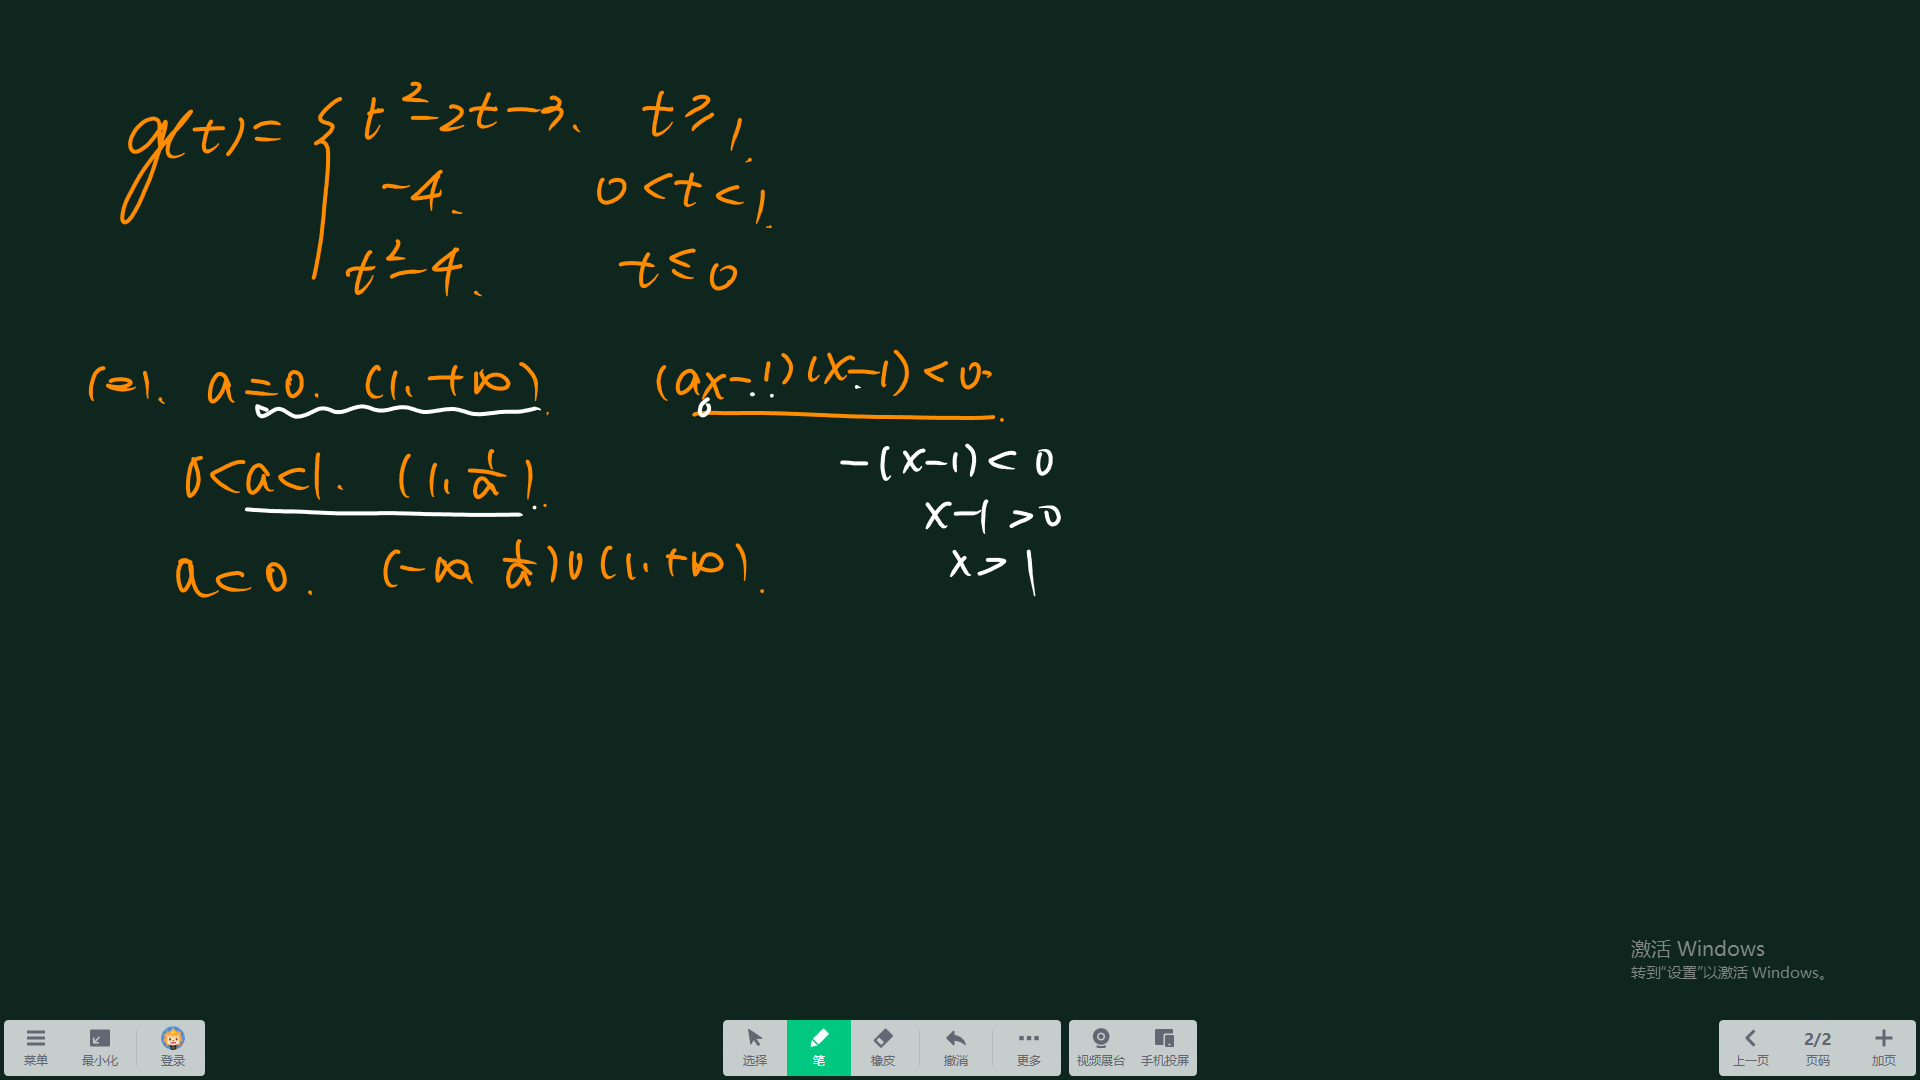 g(t)= { t²-2t-3. t≥1.
-4. 0<t<1.
t²-4. t≤0
(=). a=0. (1,+∞). (ax-1)(x-1)<0.
0<a<1. (1, 1/a).
a<0. (-∞ 1/a)∪(1,+∞).
-(x-1)<0
x-1>0
x>1
激活 Windows
转到“设置”以激活 Windows。
菜单 最小化 登录 选择 笔 橡皮 撤消 更多 视频展台 手机投屏 上一页 2/2 页码 加页